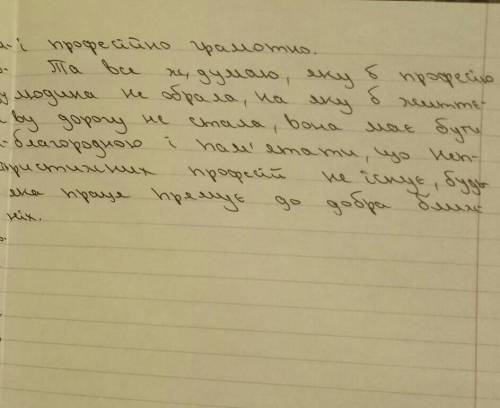 і професійно грамотно.
Та все ж, думаю, яку б професію
людина не обрала, на яку б життє-
ву дорогу не стала, вона має бути
благородною і пам'ятати, що неп-
рестижних професій не існує, будь-
яка праця прямує до добра ближ-
ніх.